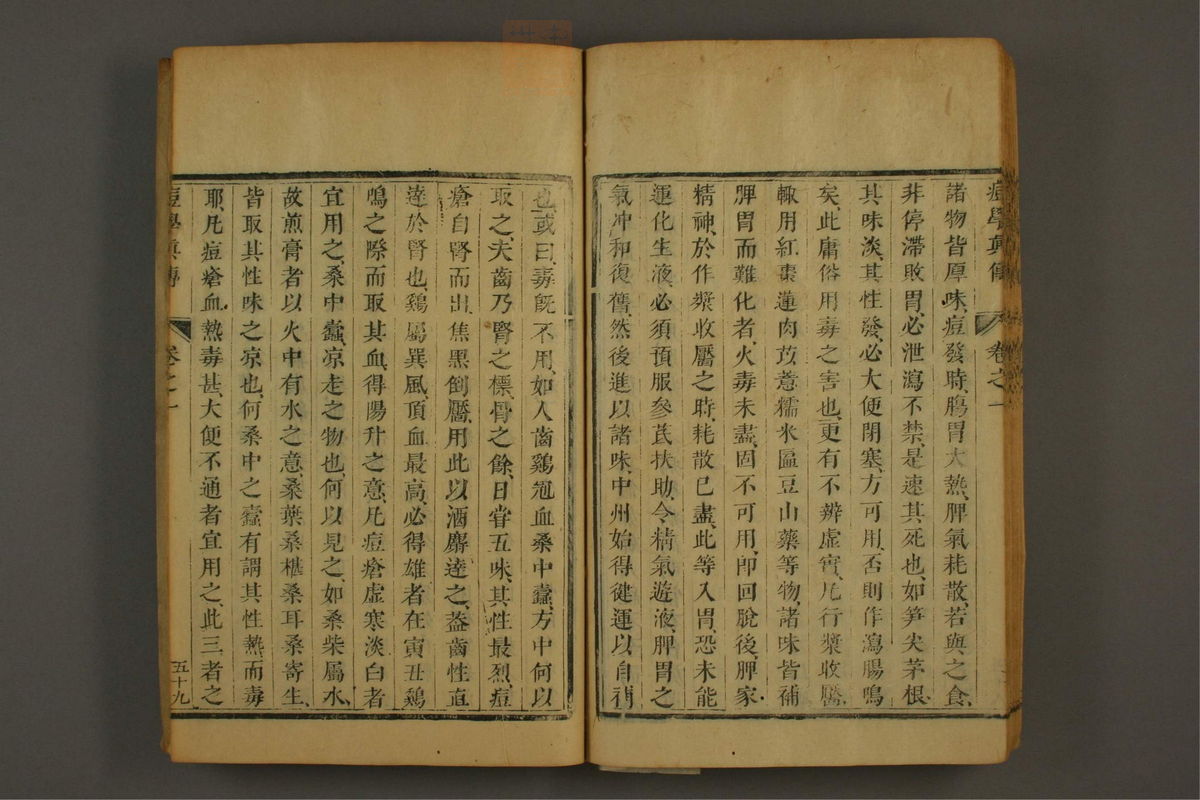 痘學真傳
卷之一
諸物皆厚味、痘發時、膓胃大熱、脾氣耗散、若與之食、
非停滯敗胃、必泄瀉不禁、是速其死也、如笋尖茅根、
其味淡、其性發、必大便閉塞、方可用、否則作瀉腸鳴
矣、此庸俗用毒之害也、更有不辨虛實、凡行漿收靨、
輙用紅棗蓮肉苡薏糯米匾豆山藥等物、諸味皆補
脾胃而難化者、火毒未盡、固不可用、卽回脫後、脾家
精神、於作漿收靨之時、耗散已盡、此等入胃恐未能
運化生液、必須預服參芪扶助、令精氣遊液、脾胃之
氣冲和復舊、然後進以諸味、中州始得健運以自補
也、或曰、毒旣不用、如人齒鷄冠血桑中蠧、方中何以
取之、夫齒乃腎之標、骨之餘、日甞五味、其性最烈、痘
瘡自腎而出、焦黑倒靨、用此以酒麝達之、葢齒性直
達於腎也、鷄屬巽風、頂血最高、必得雄者在寅丑鷄
鳴之際而取其血、得陽升之意、凡痘瘡虛寒淡白者
宜用之、桑中蠧、凉走之物也、何以見之、如桑柴屬水、
故煎膏者以火中有水之意、桑葉桑椹桑耳桑寄生、
皆取其性味之凉也、何桑中之蠧有謂其性熱而毒
耶、凡痘瘡血熱毒甚、大便不通者宜用之、此三者之
痘學真傳
卷之一
五十九